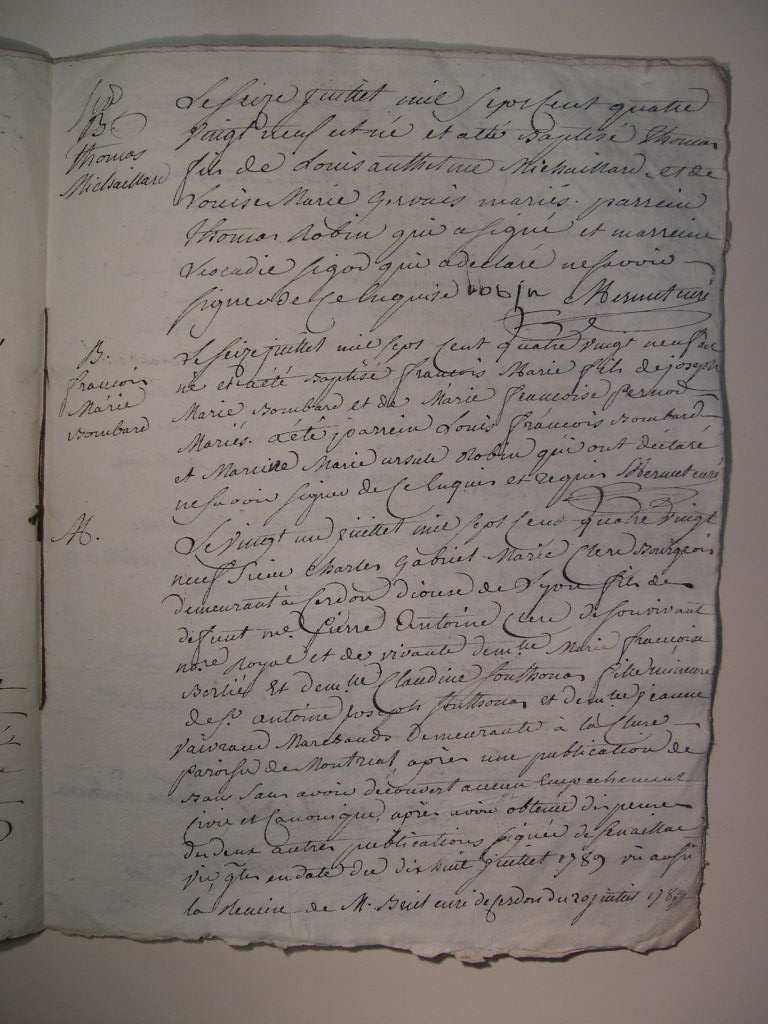 B.
Thomas
Michaillard
Le Seize juillet mil Sept Cent quatre
vingt neuf est né et a été Baptisé Thomas
fils de Louis anthelme Michaillard et de
Louise Marie Gervais mariés. parrein
Thomas Robin qui a signé et marreine
Leocadie qui a declaré ne savoir
signer de Ce Enquise robin Mermet curé
B.
françois
Marie
Bombard
Le Seize juillet mil Sept Cent quatre vingt neuf est
né et a été Baptisé françois Marie fils de joseph
Marie Bombard et de Marie françoise Pernod
Mariés. a été parrein Louis françois Bombard
et Mareine Marie ursule Robin qui ont déclaré
ne savoir signer de Ce Enquis et requis Mermet curé
M.
Le vingt un juillet mil Sept Cent quatre vingt
neuf Sieur Charles Gabriel Marie Clerc Bourgeois
demeurant à Cerdon Diocese de Lyon fils de
defunt me. Pierre Antoine Clerc de son vivant
nore Royal et de vivante demlle Marie françoise
Et demlle Claudine fille mineure
de Sr. antoine joseph et demlle jeanne
Marchands demeurante à la Cluse
paroisse de Montreal après une publication de
Bans Sans avoir découvert aucun Empechement
Civil et Canonique, après avoir obtenu dispense
des deux autres publications signée de Senaillac
vic. gl. en date du dix huit juillet 1789 vu aussi
la Remise de Mr. curé de Cerdon du 20 juillet 1789